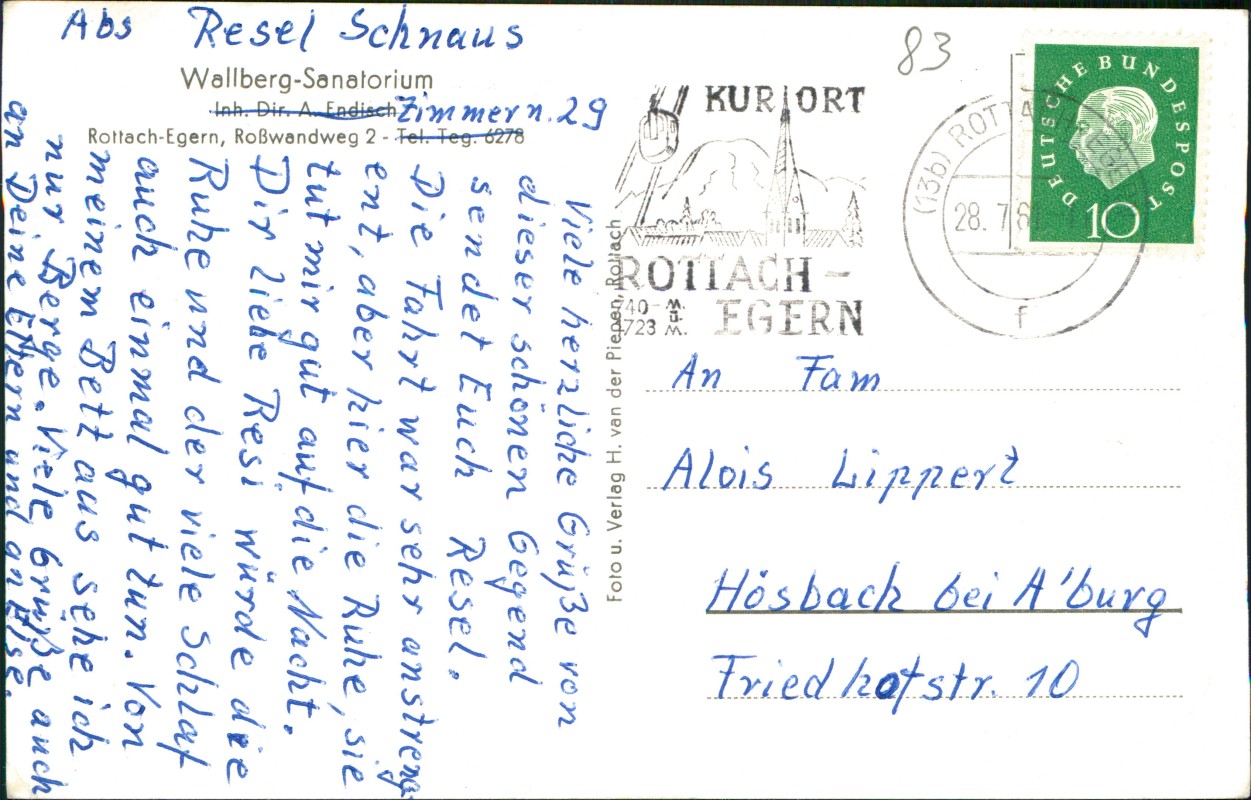 Abs Resel Schnaus
Wallberg-Sanatorium
Inh. Dir. A. Endisch Zimmer n. 29
Rottach-Egern, Roßwandweg 2 - Tel. Teg. 6278
Viele herzliche Grüße von
dieser schönen Gegend
sendet Euch Resel.
Die Fahrt war sehr anstreng
ent, aber hier die Ruhe, sie
tut mir gut auf die Nacht.
Dir liebe Resi würde die
Ruhe und der viele Schlaf
auch einmal gut tun. Von
meinem Bett aus sehe ich
nur Berge. Viele Grüße auch
an Deine Eltern und an Else.
Foto u. Verlag H. van der Piepen, Rottach
83
KURORT
ROTTACH-
EGERN
740-
1723
m.
ü.
M.
(13b) ROTTACH-EGERN
28. 7. 6
f
DEUTSCHE BUNDESPOST
10
An Fam
Alois Lippert
Hösbach bei A'burg
Friedhofstr. 10